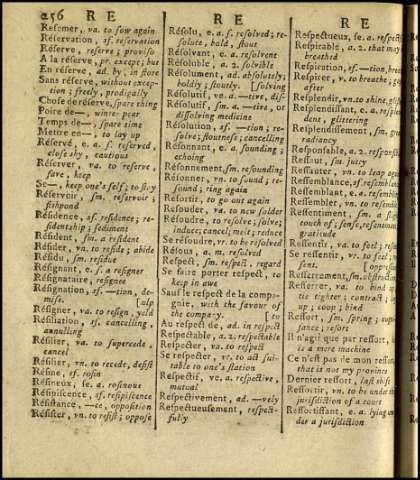 256 R E
R E
R E
Resemer, va. to sow again
Réservation, sf. reservation
Réserve, reserve; proviso
A la réserve, pr. except; but
En réserve, ad. by, in store
Sans réserve, without exception; freely, prodigally
Chose de réserve, spare thing
Poire de—, winter pear
Temps de—, spare time
Mettre en—, to lay up
Réservé, e. a. f. reserved, close shy, cautious
Réserver, va. to reserve, save, keep
Se—, keep one's self; to stay
Réservoir, sm. reservoir, fishpond
Résidence, sf. residence; residentship; sediment
Résident, sm. a resident
Résider, vn. to reside; abide
Résidu, sm. residue
Résignant, e. f. a resigner
Résignataire, resignee
Résignation, sf. —tion, demise.
Résigner, va. to resign, yield
Résiliation, sf. cancelling, annulling
Résilier, va. to supercede, cancel
Résilier, vn. to recede, desist
Résine, sf. rosin
Résineux, se. a. rosinous
Résipiscence, sf. resipiscence
Résistance, —ce, opposition
Résister, vn. to resist; oppose
Résolu, e. a. s. resolved; resolute, bold, stout
Résolvant, e. a. resolvent
Résoluble, a. 2. solvible
Résolument, ad. absolutely; boldly; stoutly. [solving
Résolutif, ve. a. —tive, dis-
Résolutif, sm. a. —tive, or dissolving medicine
Résolution, sf. —tion; resolve; stoutness; cancelling
Résonnant, e. a. sounding; echoing
Résonnement, sm. resounding
Résonner, vn. to sound; resound; ring again
Resortir, to go out again
Resouder, va. to new solder
Résoudre, to resolve; solve; induce; cancel; melt; reduce
Se résoudre, vr. to be resolved
Résous, a. m. resolved
Respect, sm. respect, regard
Se faire porter respect, to keep in awe
Sauf le respect de la compagnie, with the favour of the company. [to
Au respect de, ad. in respect
Respectable, a. 2. respectable
Respecter, va. to respect
Se respecter, vr. to act suitable to one's station
Respectif, ve. a. respective, mutual
Respectivement, ad. —vely
Respectueusement, respectfully
Respectueux, se. a. respectful
Respirable, a. 2. that may breathed
Respiration, sf. —tion, breath
Respirer, vn. to breathe;
Resplendir, vn. to shine,
Resplendissant, e. a. resplendent, glittering
Resplendissement, sm. radiancy
Responsable, a. 2. responsible
Ressaut, sm. jutty
Ressauter, vn. to leap
Ressemblance, sf. resemblance
Ressemblant, e. a.
Ressembler, vn. to resemble
Ressentiment, sm. a
touch of; sense, resentment
gratitude
Ressentir, va. to feel;
Se ressentir, vr. to feel;
Resserrement, sm.
Resserrer, va. to bind
tie tighter; contract;
up; coop; bind
Ressort, sm. spring;
fance; resort
Il n'agit que par ressort,
is a mere machine
Ce n'est pas de mon ressort
that is not my province
Dernier ressort, last shift
Ressortir, vn. to be under
jurisdiction of a court
Ressortissant, e. a. lying
der a jurisdiction